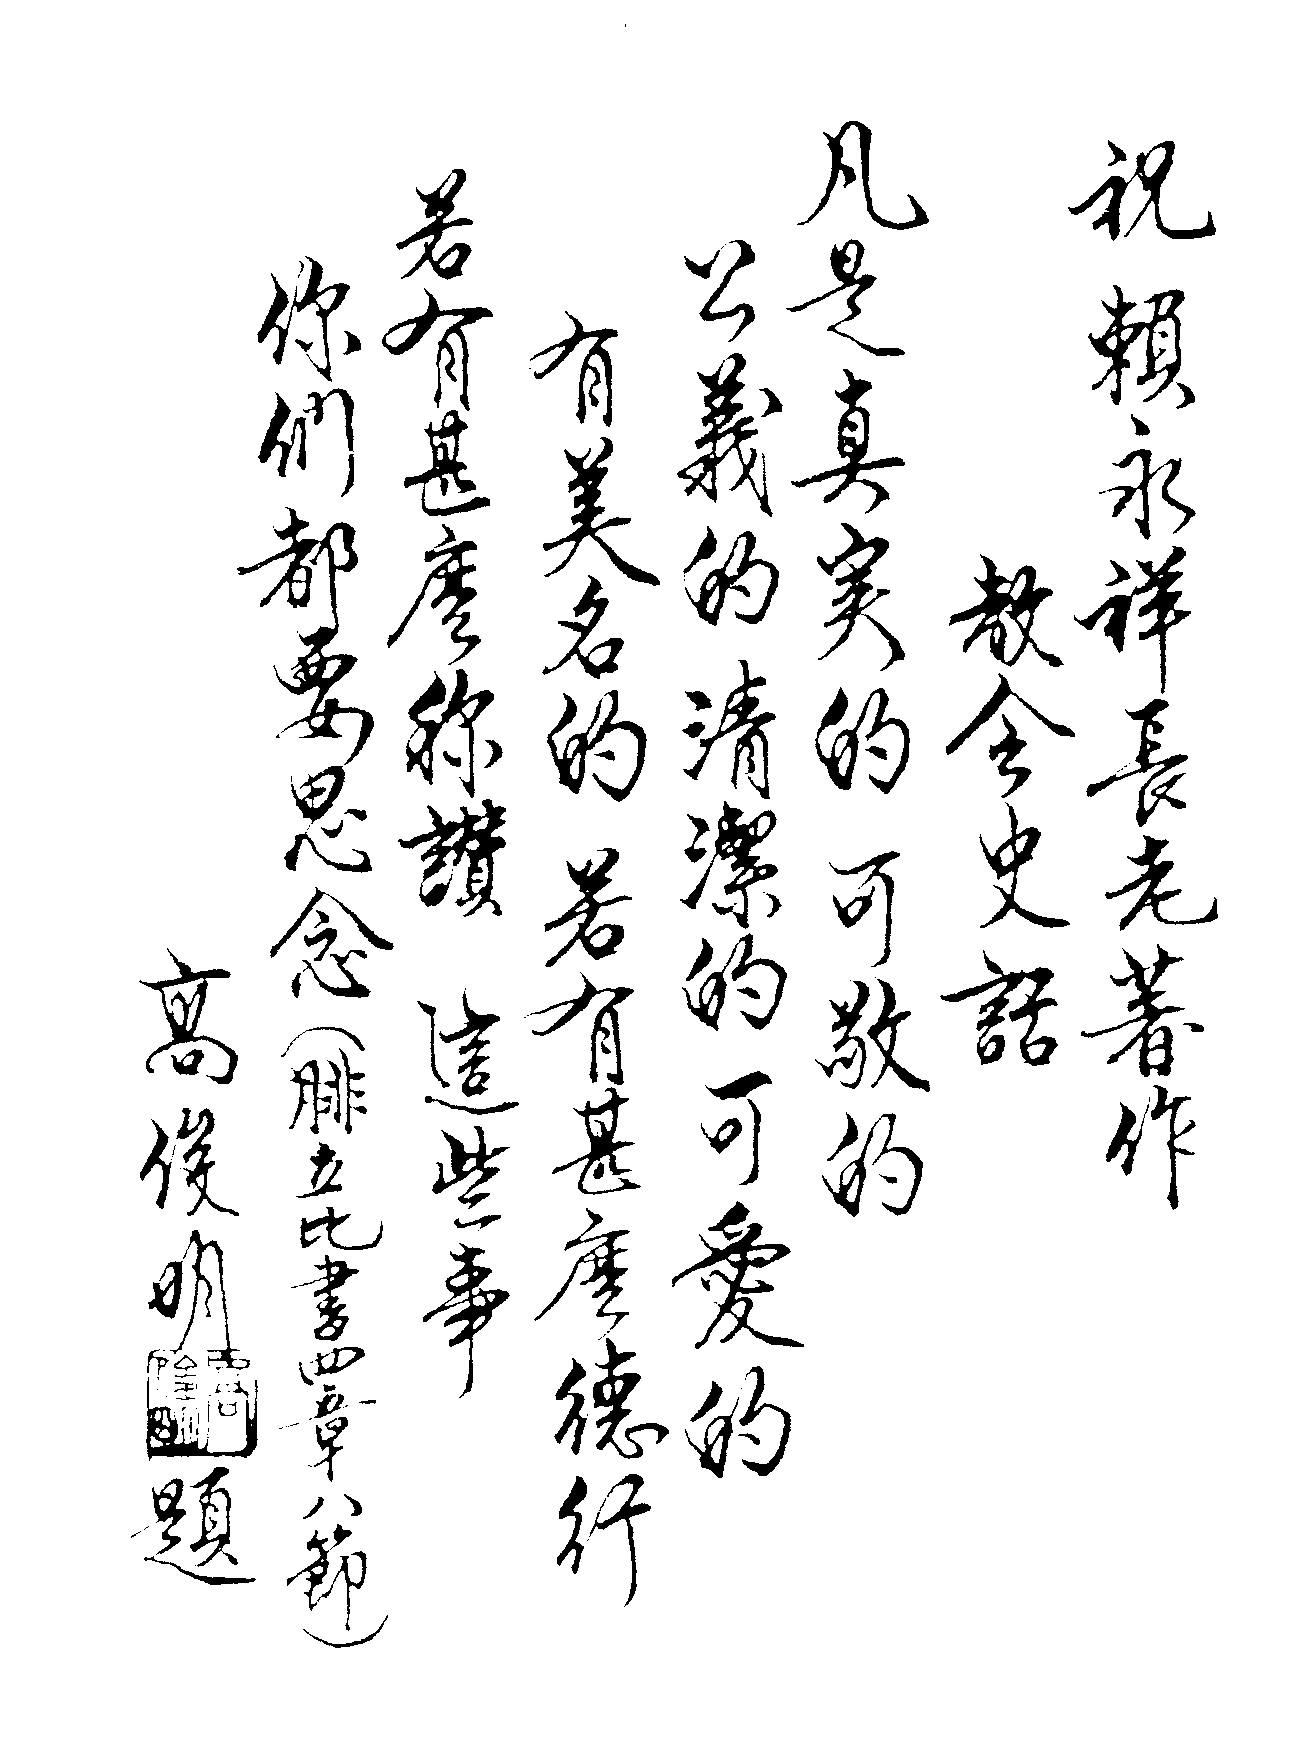 祝賴永祥長老著作
教会史話
凡是真実的可敬的
公義的清潔的可愛的
有美名的若有甚麼德行
若有甚麼称讃這些事
你們都要思念(腓立比書四章八節)
高俊明題
高俊明